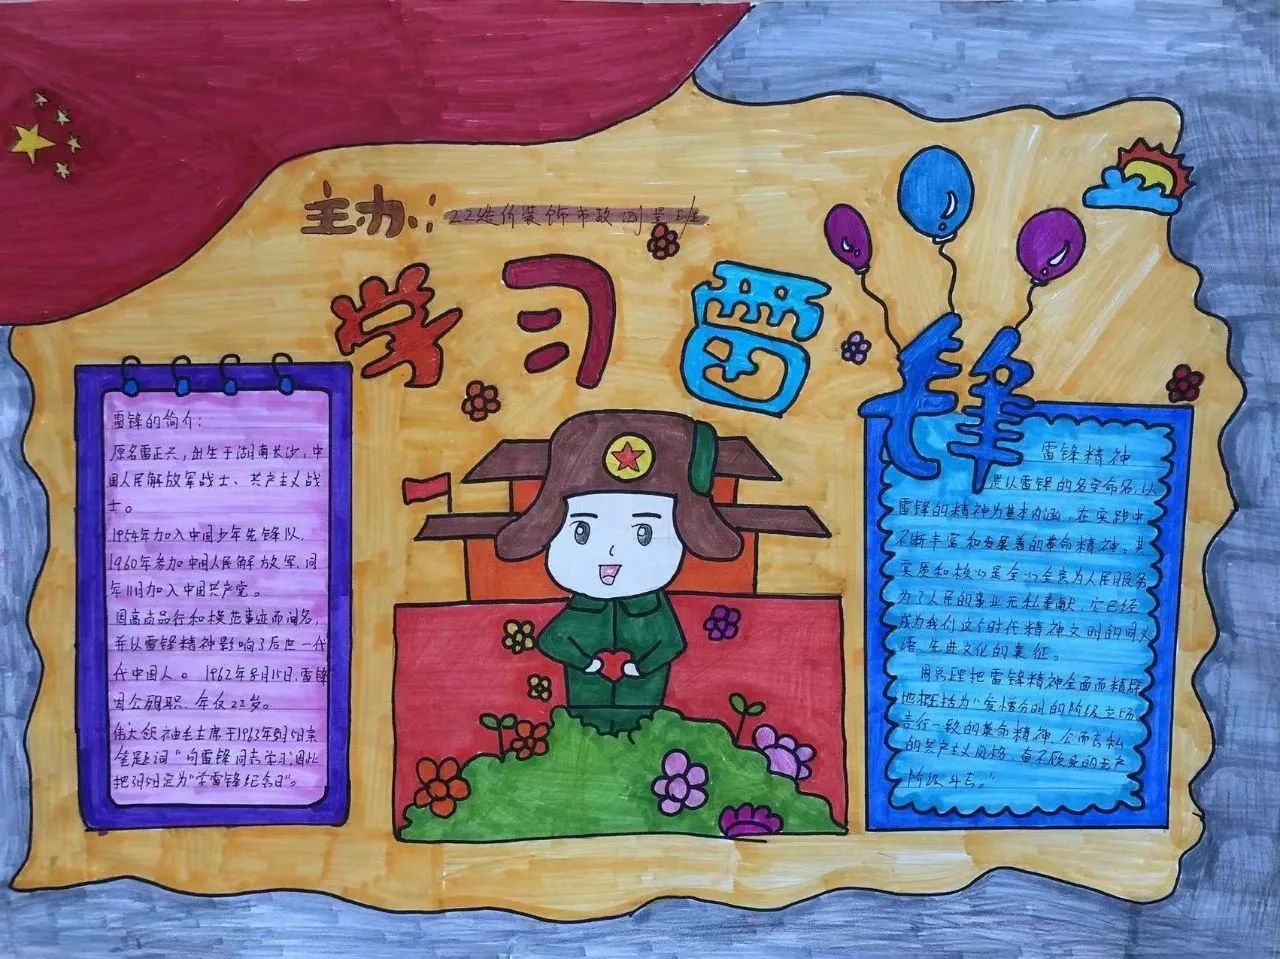 主办:
22造价装饰市政测量班
学习雷锋
雷锋的简介:
原名雷正兴,出生于湖南长沙,中
国人民解放军战士、共产主义战
士。
1954年加入中国少年先锋队,
1960年参加中国人民解放军,同
年11月加入中国共产党。
因高尚品行和模范事迹而闻名,
并以雷锋精神影响了后世一代
代中国人。 1962年8月15日,雷锋
因公殉职,年仅22岁。
伟大领袖毛主席于1963年3月5日亲
笔题词“向雷锋同志学习”,因此
把3月5日定为“学雷锋纪念日”。
雷锋精神
是以雷锋的名字命名,以
雷锋的精神为基本内涵,在实践中
不断丰富和发展着的革命精神。其
实质和核心是全心全意为人民服务
为了人民的事业无私奉献,它已经
成为我们这个时代精神文明的同义
语、先进文化的表征。
周总理把雷锋精神全面而精辟
地概括为“爱憎分明的阶级立场
言行一致的革命精神、公而忘私
的共产主义风格、奋不顾身的无产
阶级斗志。”